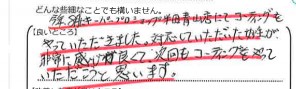 どんな些細なことでも構いません。
キーパープロショップ半田青山店にてコーティングを
【良いところ】
やっていただきました。対応していただいた方が
非常に感じが良く、次回もコーティングをやって
いただこうと思います。